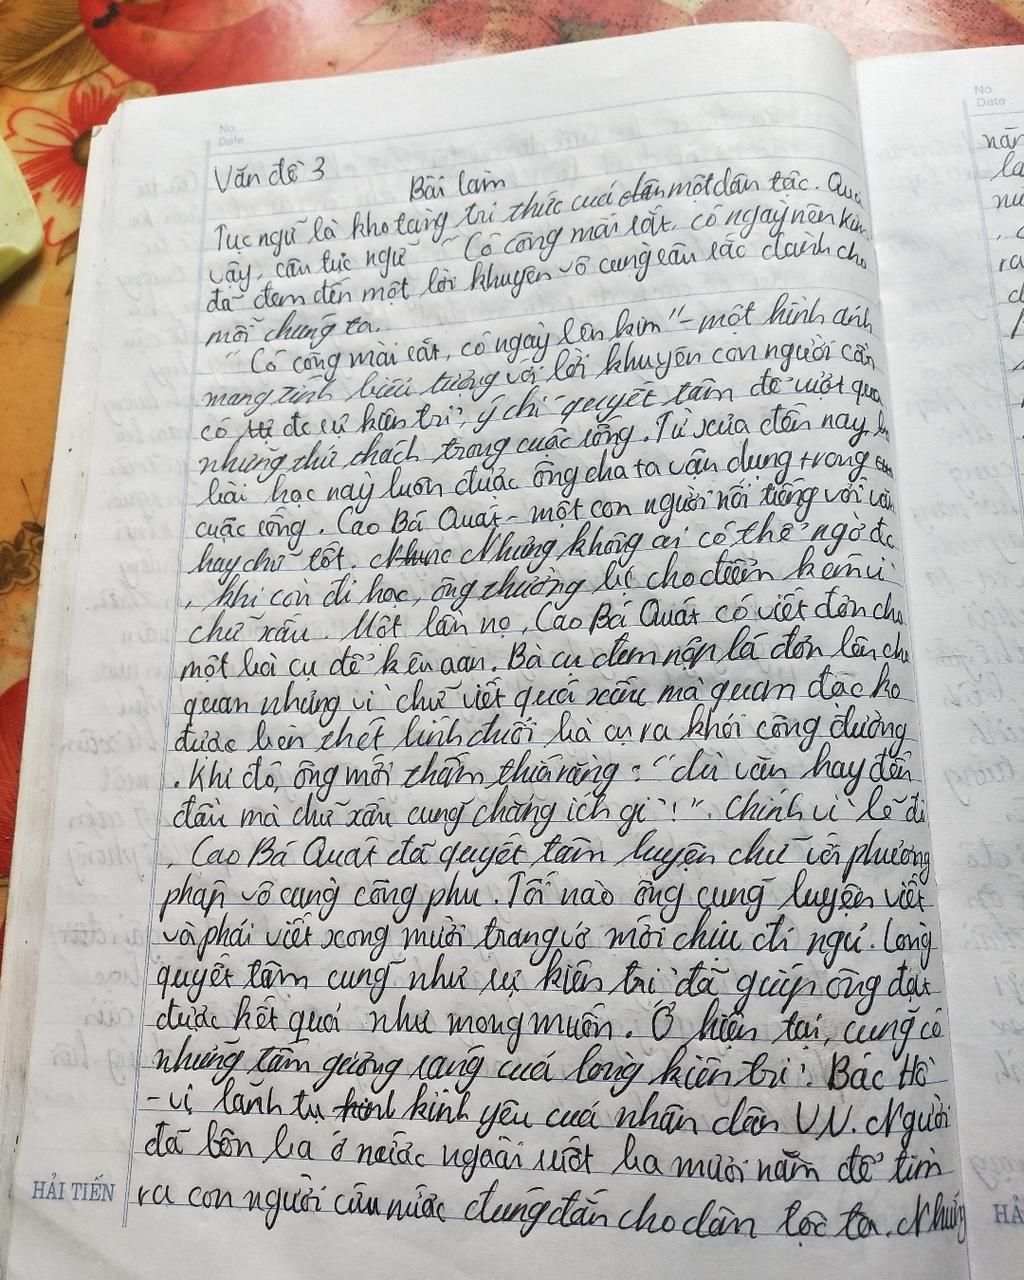 No.
Date
Văn đề 3
Bài làm
Tục ngữ là kho tàng tri thức cuả dân một dân tộc. Qua
vậy, câu tục ngữ "Có công mài sắt, có ngày nên kim
đã đem đến một lời khuyên vô cùng sâu sắc dành cho
mỗi chúng ta.
"Có công mài sắt, có ngày lên kim" - một hình ảnh
mang tính biểu tượng với lời khuyên con người cần
có đc sự kiên trì, ý chí quyết tâm để vượt qua
những thử thách trong cuộc sống. Từ xưa đến nay,
bài học này luôn được ông cha ta vận dụng trong
cuộc sống. Cao Bá Quát - một con người nổi tiếng với văn
hay chữ tốt. Nhưng không ai có thể ngờ đc
, khi còn đi học, ông thường bị cho điểm kém vì
chữ xấu. Một lần nọ, Cao Bá Quát có viết đơn cho
một bà cụ để kêu oan. Bà cụ đem nộp lá đơn lên cho
quan nhưng vì chữ viết quá xấu mà quan đọc ko
được liền thét lính đuổi bà cụ ra khỏi công đường
. Khi đó, ông mới thấm thía rằng: "dù văn hay đến
đâu mà chữ xấu cũng chẳng ích gì!". Chính vì lẽ đó
, Cao Bá Quát đã quyết tâm luyện chữ với phương
pháp vô cùng công phu. Tối nào ông cũng luyện viết
và phải viết xong mười trang vở mới chịu đi ngủ. Lòng
quyết tâm cũng như sự kiên trì đã giúp ông đạt
được kết quả như mong muốn. Ở hiện tại, cũng có
những tấm gương sáng cuả lòng kiên trì. Bác Hồ
- vị lãnh tụ kính yêu cuả nhân dân VN. Người
đã bôn ba ở nước ngoài suốt ba mươi năm để tìm
ra con người cứu nước đúng đắn cho dân tộc ta. Nhưng
HẢI TIẾN
No.
Date